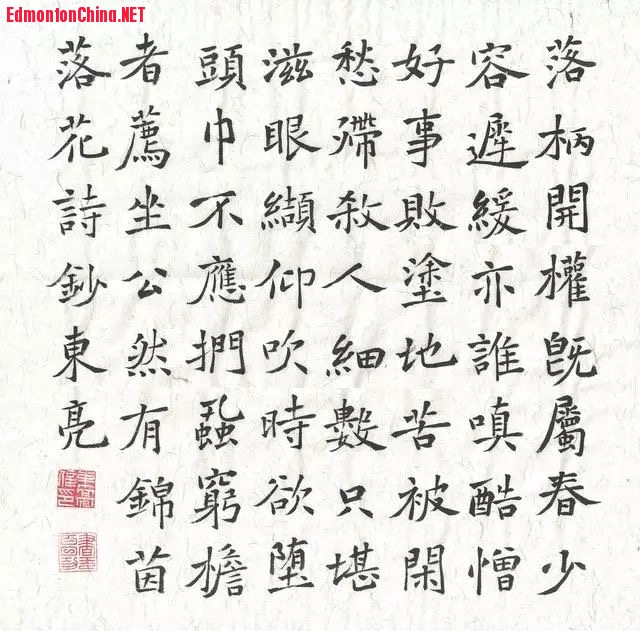 EdmontonChina.NET
落柄開權既屬春少
容遲緩亦誰嗔酷憎
好事敗塗地苦被閑
愁殢殺人細數只堪
滋眼纈仰吹時欲墮
頭巾不應捫蝨窮檐
者薦坐公然有錦茵
落花詩鈔東亮